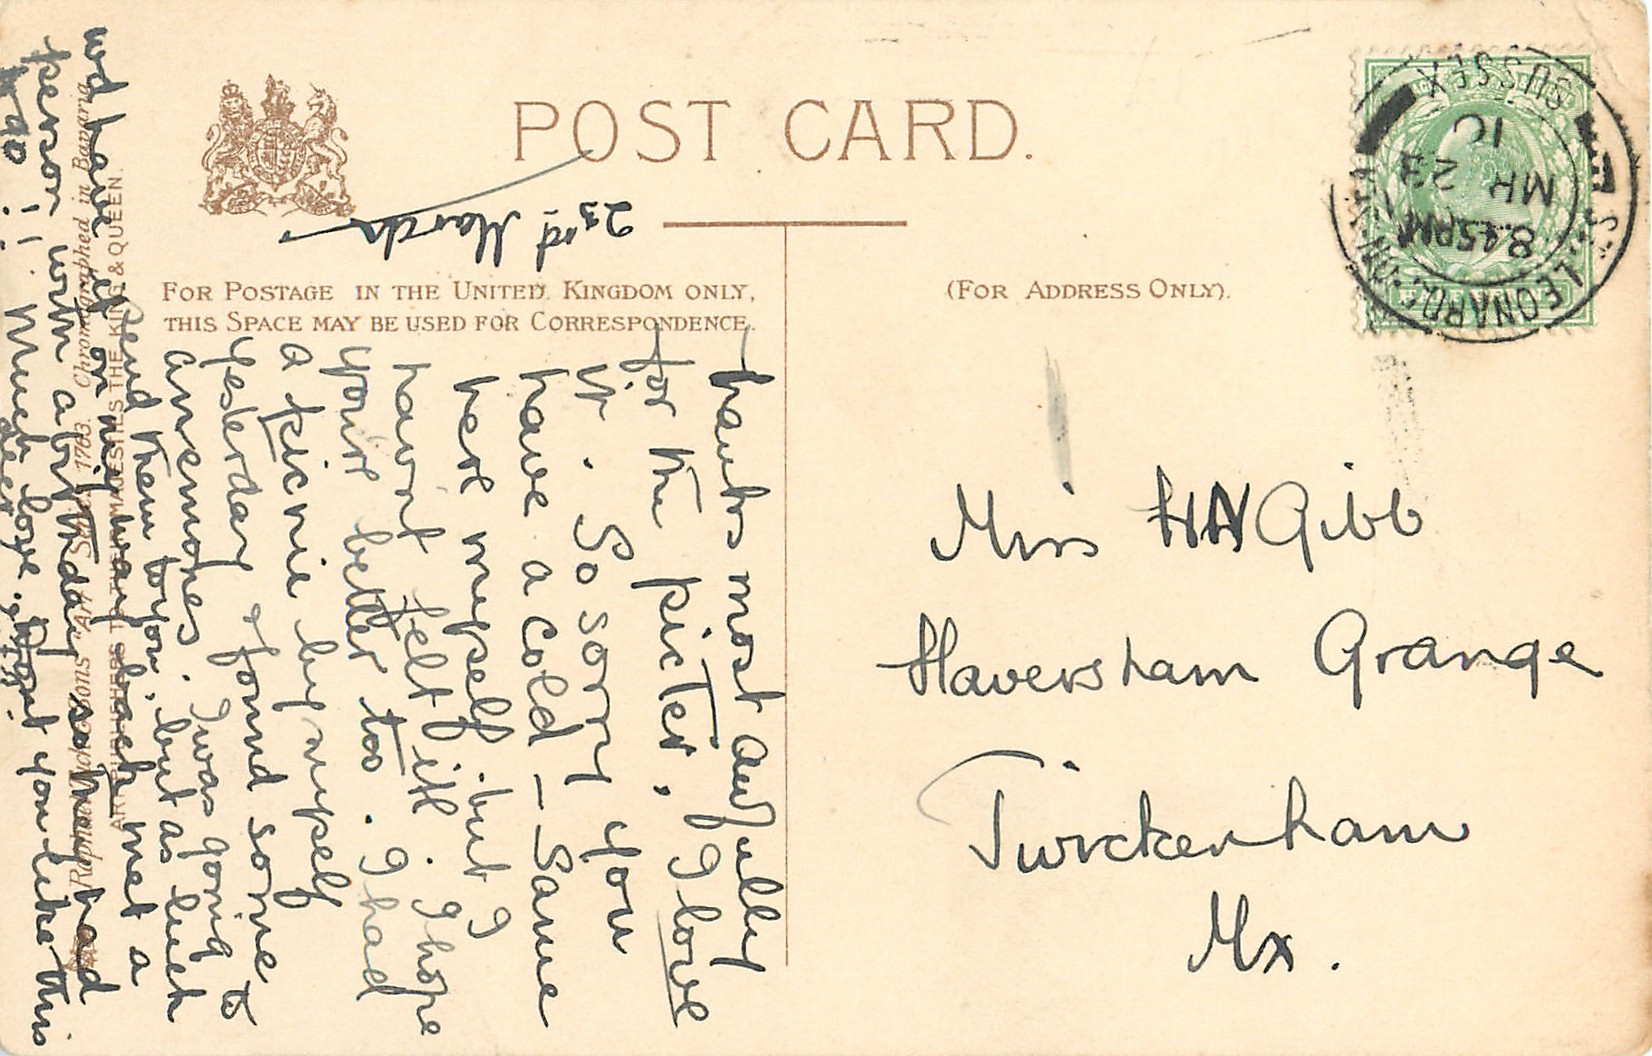 POST CARD.
23rd March
FOR POSTAGE IN THE UNITED KINGDOM ONLY,
THIS SPACE MAY BE USED FOR CORRESPONDENCE.
(FOR ADDRESS ONLY).
ST LEONARDS-ON-SEA
8.45PM
MR 23
10
SUSSEX
Thanks most awfully
for the picter. I love
it. So sorry you
have a cold – Same
here myself but I
havnt felt ill. I hope
your better too. I had
a picnic by myself
yesterday & found some
anemones. I was going to
send them to you, but as luck
wd have it on my way back met a
person with a birthday so they had
to go!! Much love. Dont you like this
Raphael Tuck & Sons' "Art" Series 1763. Chromographed in Bavaria
ART PUBLISHERS TO THEIR MAJESTIES THE KING & QUEEN.
Miss HN Gibb
Haversham Grange
Twickenham
Mx.